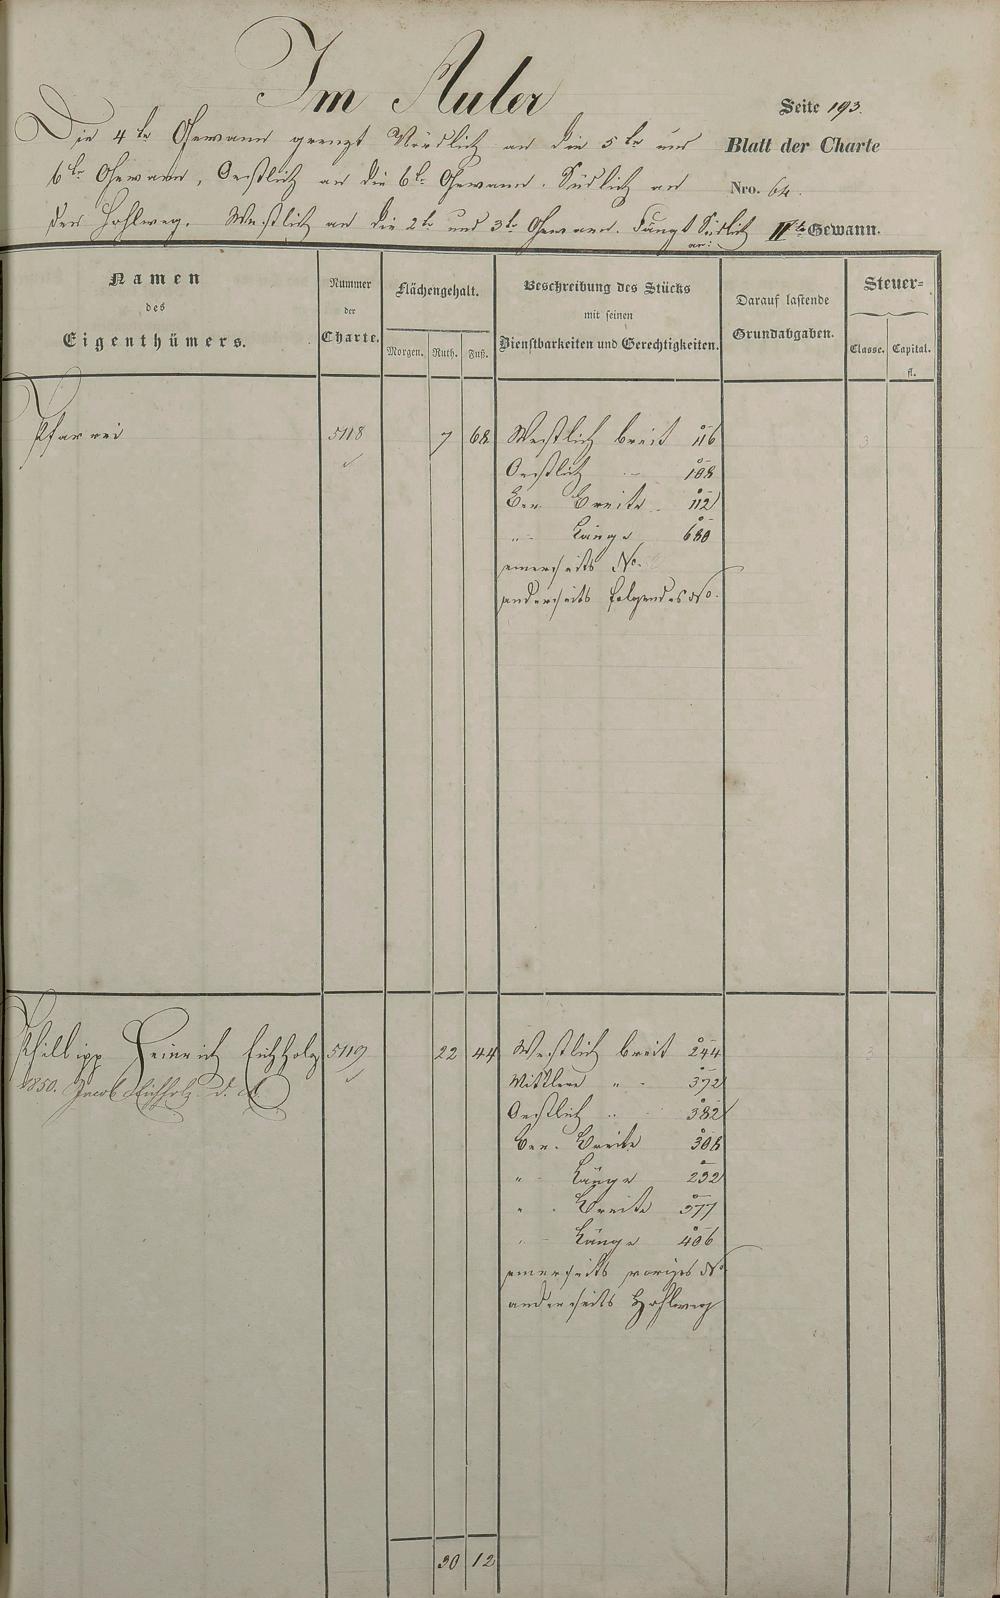 Im Auler
Seite 193.
Die 4te Gewann grenzt Nördlich an die 5te und
Blatt der Charte
6te Gewann, Oestlich an die 6te Gewann. Südlich an
Nro. 64.
den Hohlweg. Westlich an die 2te und 3te Gewann. Fängt Südlich
an:
Gewann.
Namen
des
Eigenthümers.
Nummer
der
Charte.
Flächengehalt.
Morgen. Ruth. Fuß.
Beschreibung des Stücks
mit seinen
Dienstbarkeiten und Gerechtigkeiten.
Darauf lastende
Grundabgaben.
Steuer-
Classe. Capital.
fl.
Pfarrei 5118 7 68 Westlich breit 116 3
Oestlich -- 108
Ber. Breite 112
" Länge 680
einerseits No.
anderseits folgendes No.
Phillipp Heinrich Eichholz 5119 22 44 Westlich breit 244 3
1850. Jacob Eichholz d. A.
Mittlere " 372
Oestlich " 382
Ber. Breite 308
" Länge 232
" Breite 377
" Länge 406
einerseits voriges No
anderseits Hohlweg
30 12